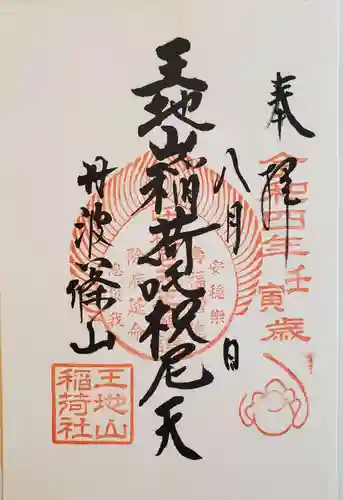 奉拝
令和四年壬寅歳
八月 日
王地山稲荷吒枳尼天
丹波篠山
安穏樂
王地山
稲荷社